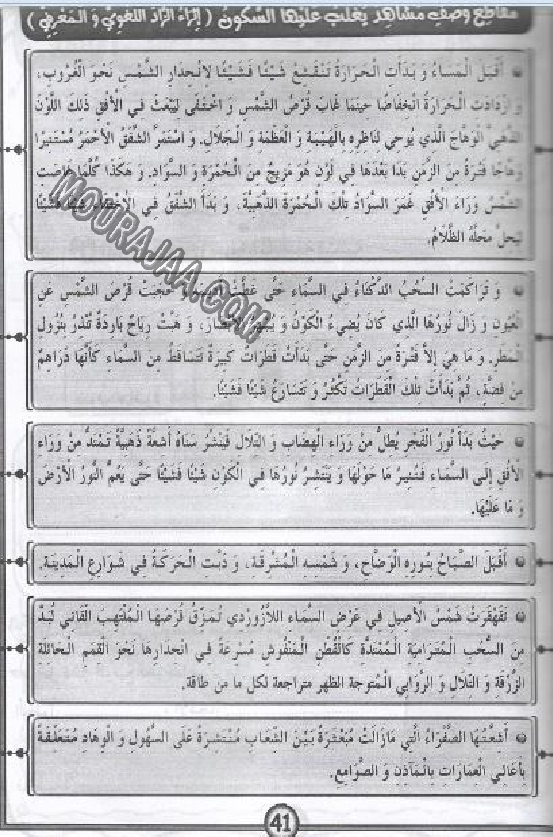 مقاطع وصف مشاهد يغلب عليها السكون ( إثراء الزاد اللغوي و المعرفي )
أَقْبَلَ الْمَسَاءُ وَ بَدَأَتِ الْحَرَارَةُ تَنْقَشِعُ شَيْئًا فَشَيْئًا لِانْحِدَارِ الشَّمْسِ نَحْوَ الْغُرُوبِ،
وَ ازْدَادَتِ الْحَرَارَةُ انْخِفَاضًا حِينَمَا غَابَ قُرْصُ الشَّمْسِ وَ اخْتَفَى لِيَبْعَثَ فِي الْأُفُقِ ذَلِكَ اللَّوْنَ
الذَّهَبِيَّ الْوَهَّاجَ الَّذِي يُوحِي لِنَاظِرِهِ بِالْهَيْبَةِ وَ الْعَظَمَةِ وَ الْجَلَالِ. وَ اسْتَمَرَّ الشَّفَقُ الْأَحْمَرُ مُسْتَنِيرًا
وَهَّاجًا فَتْرَةً مِنَ الزَّمَنِ بَدَا بَعْدَهَا فِي لَوْنٍ هُوَ مَزِيجٌ مِنَ الْحُمْرَةِ وَ السَّوَادِ. وَ هَكَذَا كُلَّمَا غَاصَتِ
الشَّمْسُ وَرَاءَ الْأُفُقِ غَمَرَ السَّوَادُ تِلْكَ الْحُمْرَةَ الذَّهَبِيَّةَ. وَ بَدَأَ الشَّفَقُ فِي الْاِخْتِفَاءِ شَيْئًا فَشَيْئًا
لِيَحِلَّ مَحَلَّهُ الظَّلَامُ.
وَ تَرَاكَمَتِ السُّحُبُ الدَّكْنَاءُ فِي السَّمَاءِ حَتَّى غَطَّتِ السَّمَاءَ حَجَبَتْ قُرْصَ الشَّمْسِ عَنِ
الْعُيُونِ وَ زَالَ نُورُهَا الَّذِي كَانَ يُضِيءُ الْكَوْنَ وَ يُبْهِرُ الْأَبْصَارَ، وَ هَبَّتْ رِيَاحٌ بَارِدَةٌ تُنْذِرُ بِنُزُولِ
الْمَطَرِ. وَ مَا هِيَ إِلَّا فَتْرَةٌ مِنَ الزَّمَنِ حَتَّى بَدَأَتْ قَطَرَاتٌ كَبِيرَةٌ تَتَسَاقَطُ مِنَ السَّمَاءِ كَأَنَّهَا دَرَاهِمُ
مِنْ فِضَّةٍ، ثُمَّ بَدَأَتْ تِلْكَ الْقَطَرَاتُ تَكْثُرُ وَ تَتَسَارَعُ شَيْئًا فَشَيْئًا.
حَيْثُ بَدَأَ نُورُ الْفَجْرِ يُطِلُّ مِنْ وَرَاءِ الْهِضَابِ وَ التِّلَالِ فَيَنْشُرُ سَنَاهُ أَشِعَّةً ذَهَبِيَّةً تَمْتَدُّ مِنْ وَرَاءِ
الْأُفُقِ إِلَى السَّمَاءِ فَتُنِيرُ مَا حَوْلَهَا وَ يَنْتَشِرُ نُورُهَا فِي الْكَوْنِ شَيْئًا فَشَيْئًا حَتَّى يَعُمَّ النُّورُ الْأَرْضَ
وَ مَا عَلَيْهَا.
أَقْبَلَ الصَّبَاحُ بِنُورِهِ الْوَضَّاحِ، وَ شَمْسِهِ الْمُشْرِقَةِ، وَ دَبَّتِ الْحَرَكَةُ فِي شَوَارِعِ الْمَدِينَةِ.
تَقَهْقَرَتْ شَمْسُ الْأَصِيلِ فِي عَرْضِ السَّمَاءِ اللَّازُورْدِي تُمَزِّقُ قُرْصَهَا الْمُلْتَهِبَ الْقَانِي نُبَذٌ
مِنَ السُّحُبِ الْمُتَرَامِيَةِ الْمُمْتَدَّةِ كَالْقُطْنِ الْمَنْفُوشِ مُسْرِعَةً فِي انْحِدَارِهَا نَحْوَ الْقِمَمِ الْحَائِلَةِ
الزُّرْقَةِ وَ التِّلَالِ وَ الرَّوَابِي الْمُتَوَّجَةِ الظهر متراجعة لكل ما من طاقة.
أَشِعَّتُهَا الصَّفْرَاءُ الَّتِي مَازَالَتْ مُبَعْثَرَةً بَيْنَ الشِّعَابِ مُنْتَشِرَةً عَلَى السُّهُولِ وَ الْوِهَادِ مُتَعَلِّقَةً
بِأَعَالِي الْعِمَارَاتِ بِالْمَآذِنِ وَ الصَّوَامِعِ.
MOURAJAA.COM
41